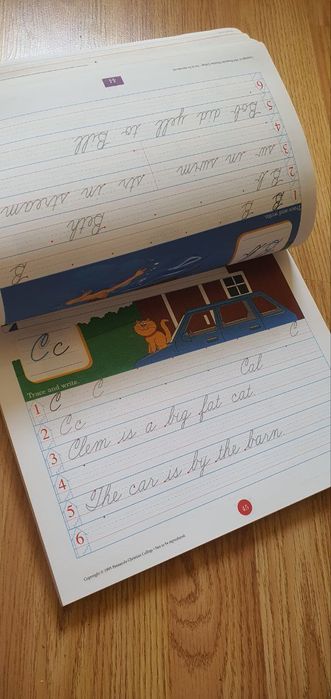 44
6
5 Bob did yell to Bill
4
3 sw in swim str in stream
2 B b Beth
1 B B B
Trace and write.
B b
C c
Trace and write.
1 C C C
2 Cc Cal
3 Clem is a big fat cat.
4
5 The car is by the barn.
6
45
Copyright © 1995 Pensacola Christian College • Not to be reproduced.